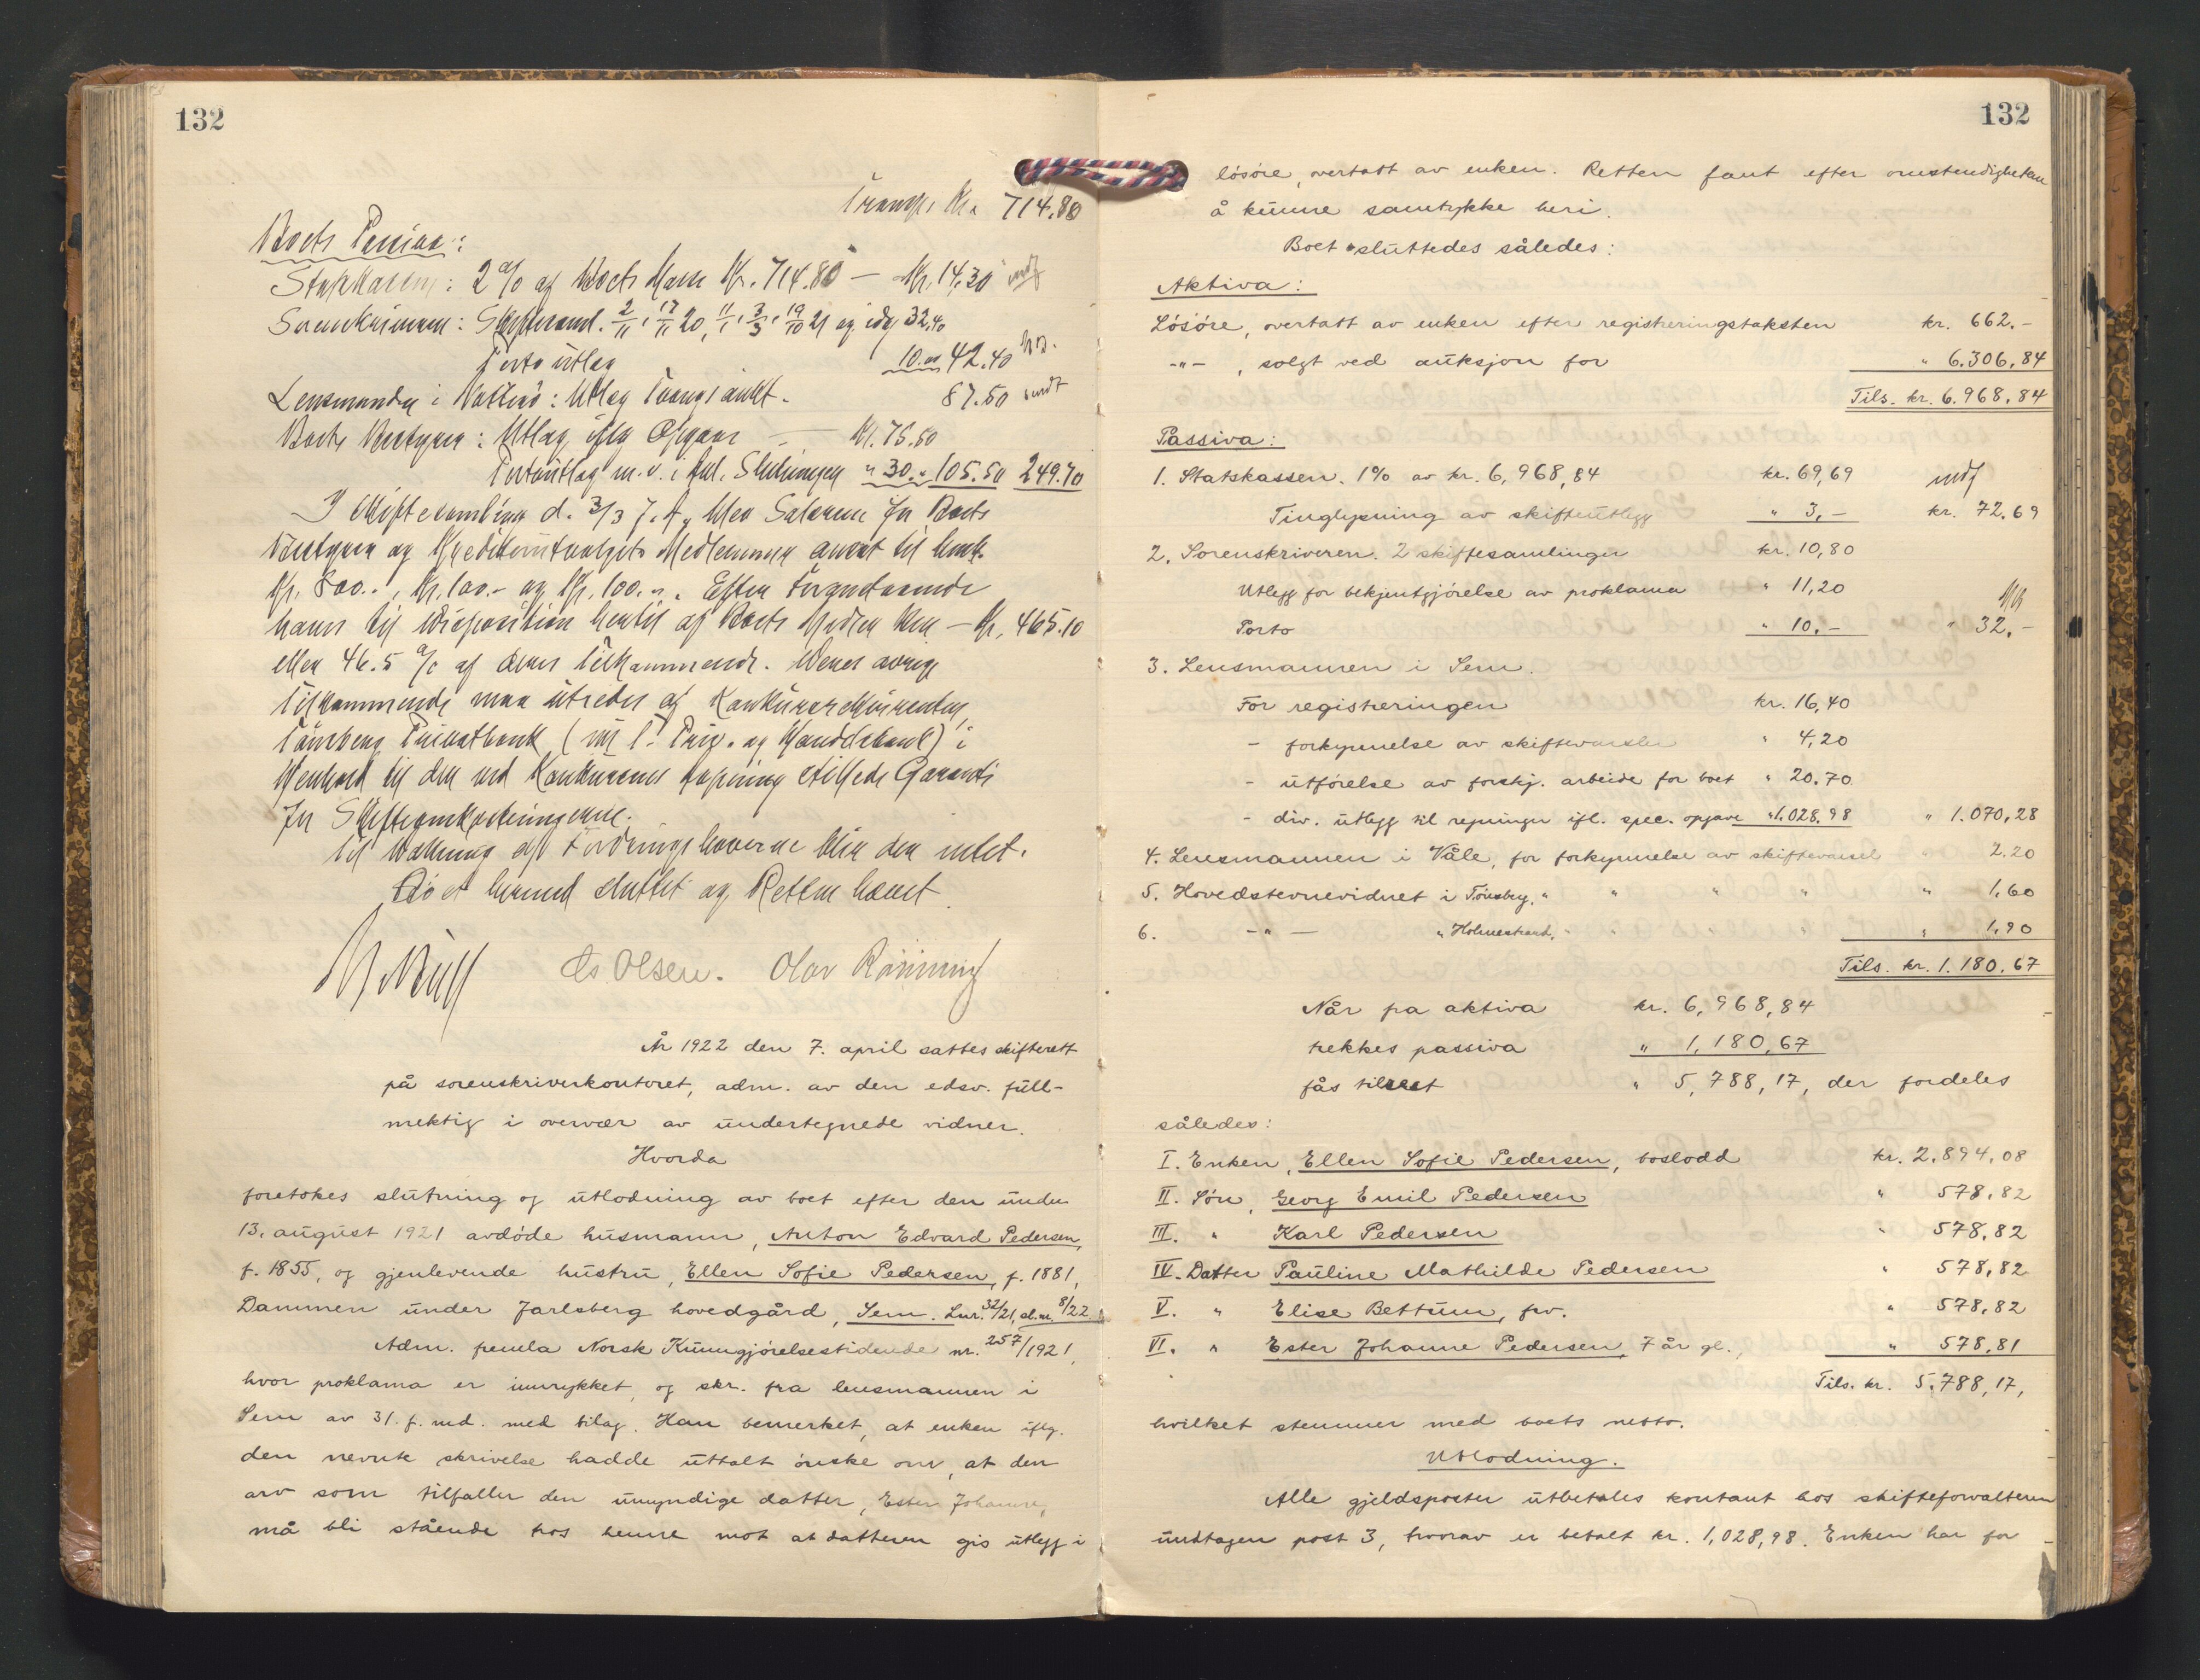 132
Transp. Kr. 714.80
Boets Passiva:
Statskassen: 2 % af Boets Masse Kr. 714.80 — Kr. 14.30 indf
Sorenskriveren: Skiftesaml. 2/11, 17/11 20, 11/1, 3/3, 19/10 21 og idag 32.40
Porto utlag 10.00 42.40
Lensmanden i Nøtterø: Utlæg Tvangsaukt. 87.50 indf
Boets Bestyrer: Utlag iflg Opgave — Kr. 75.50
Portoutlag m.v. i anl. Slutningen " 30.- 105.50 249.70
I Skiftesamling d. 3/3 f. A. blev Salærene for Boets
Bestyrer og Kreditorutvalgets Medlemmer ansat til henh.
Kr. 800.-, Kr. 100.- og Kr. 100.-. Efter Foranstaaende
haves til Disposition hertil af Boets Midler kun — Kr. 465.10
eller 46.5 % af deres Tilkommende. Deres øvrige
Tilkommende maa utredes af Konkursrekvirenten,
Tønsberg Privatbank (nu T. Priv. og Handelsbank) i
Henhold til den ved Konkursens Aapning stillede Garanti
for Skifteomkostningerne.
Til Dækning af Fordringshaverne blir der intet.
Bo et hermed sluttet og Retten hævet.
Cs Olsen. Olav Rønning
År 1922 den 7. april sattes skifterett
på sorenskriverkontoret, adm. av den edsv. full-
mektig i overvær av undertegnede vidner.
Hvorda
foretokes slutning og utlodning av boet efter den under
13. august 1921 avdøde husmann, Anton Edvard Pedersen,
f. 1855, og gjenlevende hustru, Ellen Sofie Pedersen, f. 1881,
Dammen under Jarlsberg hovedgård, Sem. Lnr. 32/21, sl.nr. 8/22.
Adm. fremla Norsk Kunngjørelsestidende nr. 257/1921,
hvor proklama er innrykket, og skr. fra lensmannen i
Sem av 31. f. md. med bilag. Han bemerket, at enken iflg.
den nevnte skrivelse hadde uttalt ønske om, at den
arv som tilfaller den umyndige datter, Ester Johanne,
må bli stående hos henne mot at datteren gis utlegg i
132
løsøre, overtatt av enken. Retten fant efter omstendigheten
å kunne samtykke heri.
Boet sluttedes således:
Aktiva:
Løsøre, overtatt av enken efter registreringstaksten kr. 662.-
-"- , solgt ved auksjon for " 6.306,84
Tils. kr. 6.968,84
Passiva:
1. Statskassen. 1% av kr. 6,968,84 kr. 69,69 indf
Tinglysning av skifteutlegg " 3,- kr. 72.69
2. Sorenskriveren. 2 skiftesamlinger kr. 10,80
Utlegg for bekjentgjørelse av proklama " 11,20
Porto " 10.- " 32.-
3. Lensmannen i Sem.
For registreringen kr. 16,40
- forkynnelse av skiftevarsler " 4,20
- utførelse av forskj. arbeide for boet " 20.70
- div. utlegg til regninger ifl. spec. opgave " 1.028.98 " 1.070,28
4. Lensmannen i Våle, for forkynnelse av skiftevarsel " 2.20
5. Hovedstevnevidnet i Tønsberg, " " " " " 1,60
6. -"- " Holmestrand, " " " " 1,90
Tils. kr. 1.180.67
Når fra aktiva kr. 6,968,84
trekkes passiva " 1,180,67
fås tilrest " 5,788,17, der fordeles
således:
I. Enken, Ellen Sofie Pedersen, boslodd kr. 2.894,08
II. Søn, Georg Emil Pedersen " 578,82
III. " Karl Pedersen " 578,82
IV. Datter Pauline Mathilde Pedersen " 578,82
V. " Elise Bettum, frv. " 578,82
VI. " Ester Johanne Pedersen, 7 år gl., " 578,81
Tils. kr. 5.788,17,
hvilket stemmer med boets netto.
Utlodning.
Alle gjeldsposter utbetales kontant hos skifteforvalteren
undtagen post 3, hvorav er betalt kr. 1,028,98. Enken har for